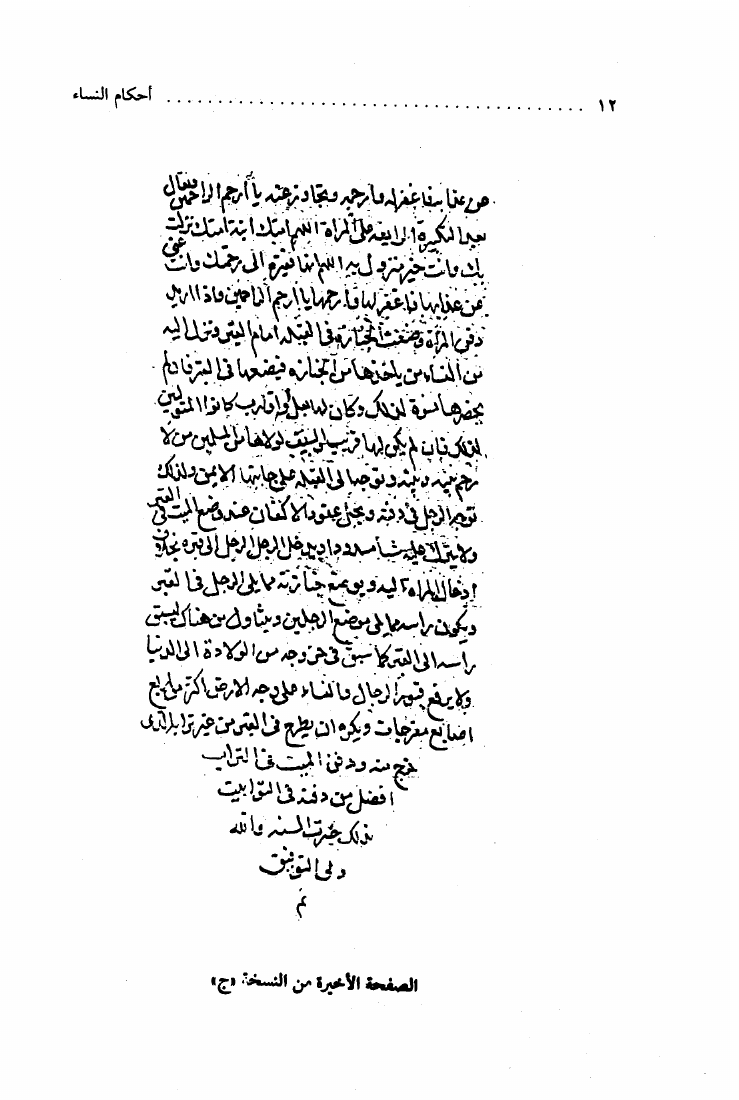 ١٢ ........................................ أحكام النساء
عن عذابها فاغفر له وارحمه وتجاوز عنه يا أرحم الراحمين ويقال
بعد التكبيرة الرابعة على المرأة اللهم امتك ابنة امتك نزلت
بك وانت خير منزول به اللهم انها فقيرة الى رحمتك وانت غني
عن عذابها فاغفر لها وارحمها يا أرحم الراحمين واذا اريد
دفن المرأة وضعت الجنازة في القبلة امام القبر ونزل اليه
من النساء من يأخذها من الجنازه فيضعها في القبر فان لم
يحضرها نسوة لذلك وكان لها بعل أو اقارب كانوا المتولين
لذلك فان لم يكن لها قريب من المسلمين من لا
رحم بينه وبينها ويوجهها الى القبلة على جانبها الايمن وكذلك
توجه الرجل في دفنه وتحل عقود الاكفان عند وضع الميت في القبر
ولا يترك عليه شيأ مسدودا ويدخل الرجل الرجل الى قبره بخلاف
ادخال المراه اليه ويوضع جنازته مما يلي الرجل في القبر
ويكون راسه مما يلي موضع الرجلين ويتناول من هناك ليسبق
راسه الى القبر كما سبق في خروجه من الولادة الى الدنيا
ولا يرفع قبور الرجال والنساء على وجه الارض اكثر من اربع
اصابع مفرجات ويكره ان يطرح في القبر من غير ترابه الذي
خرج منه ودفن الميت في التراب
افضل من دفنه في التوابيت
بذلك جرت السنه والله
ولي التوفيق
تم
الصفحة الأخيرة من النسخة «ج»